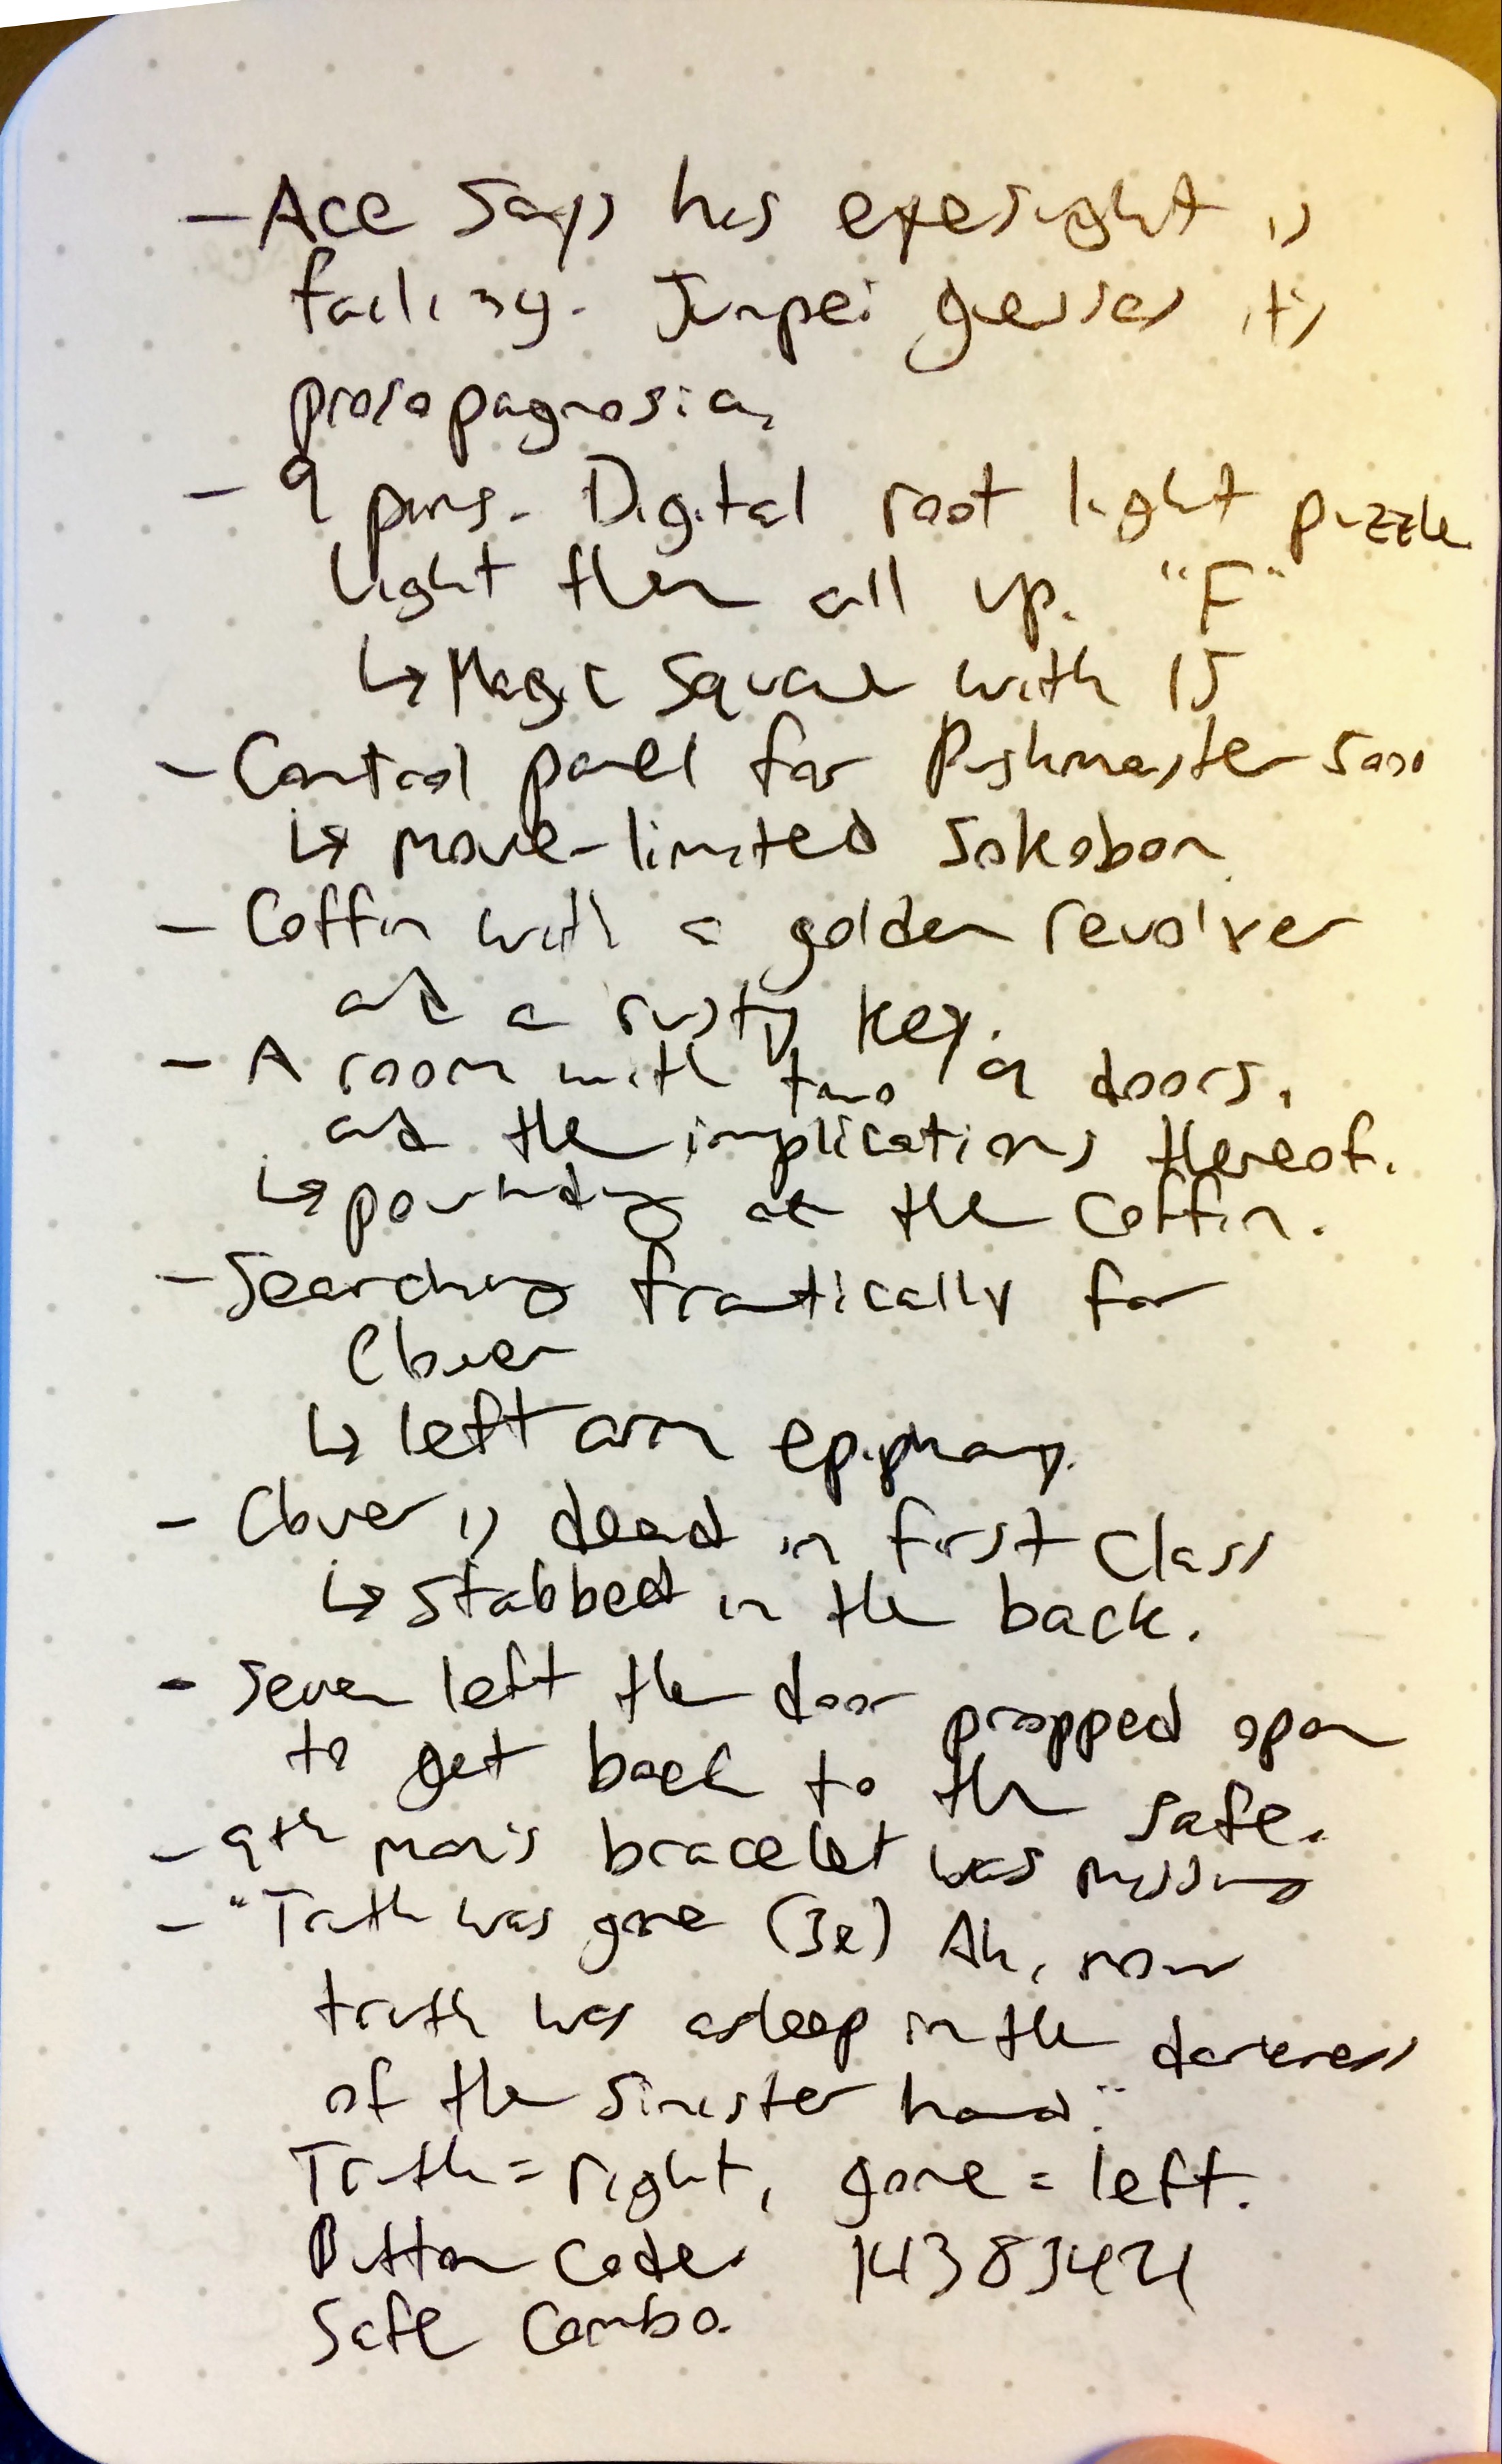 - Ace says his eyesight is
failing. Junpei guesses it's
prosopagnosia.
- 9 pins. Digital root light puzzle
Light them all up. "F"
↳ Magic square with 15
- Control panel for Pushmaster 5000
↳ move-limited sokoban
- Coffin with a golden revolver
and a rusty key.
- A room with two 9 doors,
and the implications thereof.
↳ pounding at the coffin.
- Searching frantically for
Clover
↳ left arm epiphany.
- Clover is dead in first class
↳ stabbed in the back.
- Seven left the door propped open
to get back to the safe.
- 9th man's bracelet was missing
- "Truth was gone (3x) Ah, now
truth was asleep in the darkness
of the sinister hand."
Truth = right, gone = left.
Button code. 14383421
Safe combo.